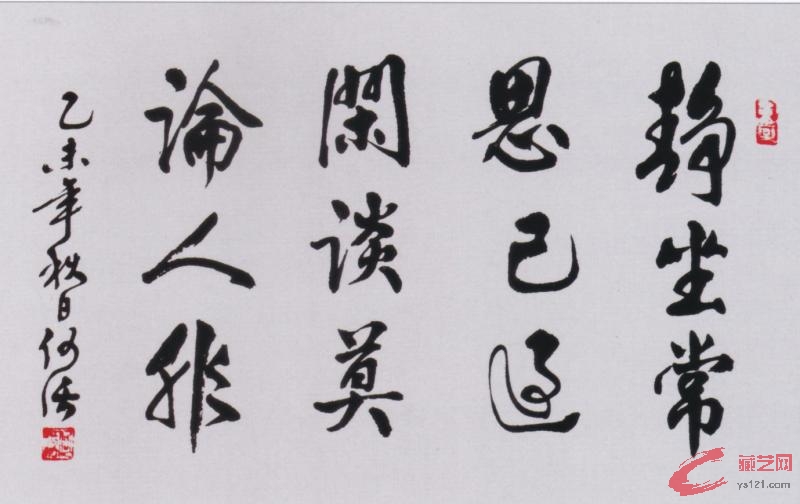 靜坐常
思己過
閑談莫
論人非
乙未年秋日何活
藏艺网
ys121.com